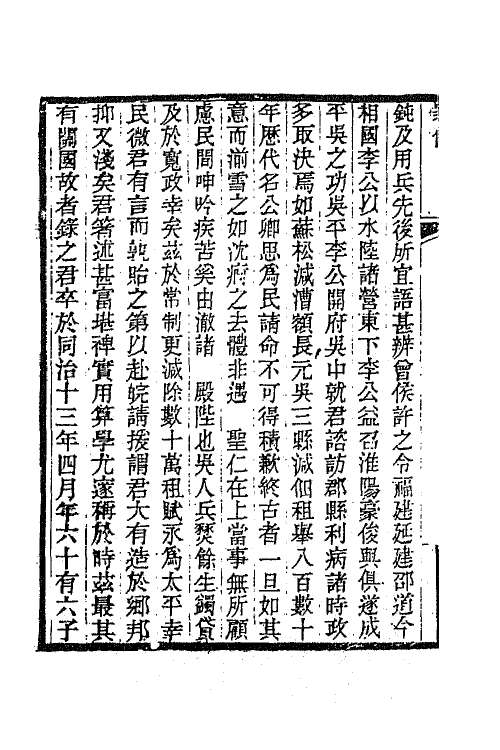 鈍及用兵先後所宜語甚辨曾侯許之令福建延建邵道今
相國李公以水陸諸營東下李公益召淮陽豪俊與俱遂成
平吳之功吳平李公開府吳中就君諮訪郡縣利病諸時政
多取決焉如蘇松減漕額長元吳三縣減佃租舉入百數十
年歷代名公卿思爲民請命不可得積歉終古者一旦如其
意而湔雪之如沈痾之去體非遇 聖仁在上當事無所顧
慮民間呻吟疾苦奚由澈諸 殿陛也吳人兵燹餘生蠲貸
及於寬政幸矣茲於常制更減除數十萬租賦永爲太平幸
民微君有言而孰貽之第以赴皖請援謂君大有造於鄉邦
抑又淺矣君箸述甚富堪裨實用算學尤邃稱於時茲最其
有關國故者錄之君卒於同治十三年四月年六十有六子